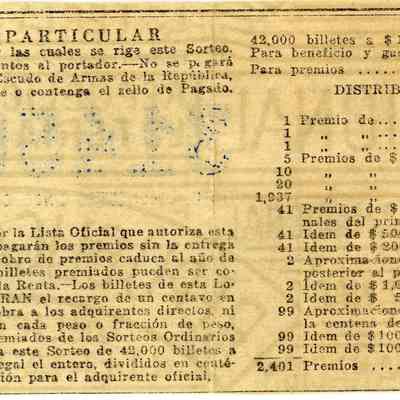 PARTICULAR
las cuales se rige este Sorteo.
ntos al portador.—No se pagará
Escudo de Armas de la República,
e o contenga el sello de Pagado.
r la Lista Oficial que autoriza esta
pagarán los premios sin la entrega
cobro de premios caduca al año de
billetes premiados pueden ser co-
la Renta.—Los billetes de esta Lo-
RAN el recargo de un centavo en
obra a los adquirentes directos, ni
n cada peso o fracción de peso,
emiados de los Sorteos Ordinarios
a este Sorteo de 42,000 billetes a
egal el entero, divididos en centé-
ión para el adquirente oficial.
42,000 billetes a $
Para beneficio y ga
Para premios .....
DISTRIB
1 Premio de....
1 „ „ ....
1 „ „ ....
5 Premios de $
10 „ „
20 „ „
1,937 „ „
41 Premios de $
nales del prim
41 Idem de $ 50
41 Idem de $ 20
2 Aproximacione
posterior al p
2 Idem de $ 1,0
2 Idem de $ 5
99 Aproximacione
la centena de
99 Idem de $ 100
99 Idem de $ 100
2,401 Premios .....